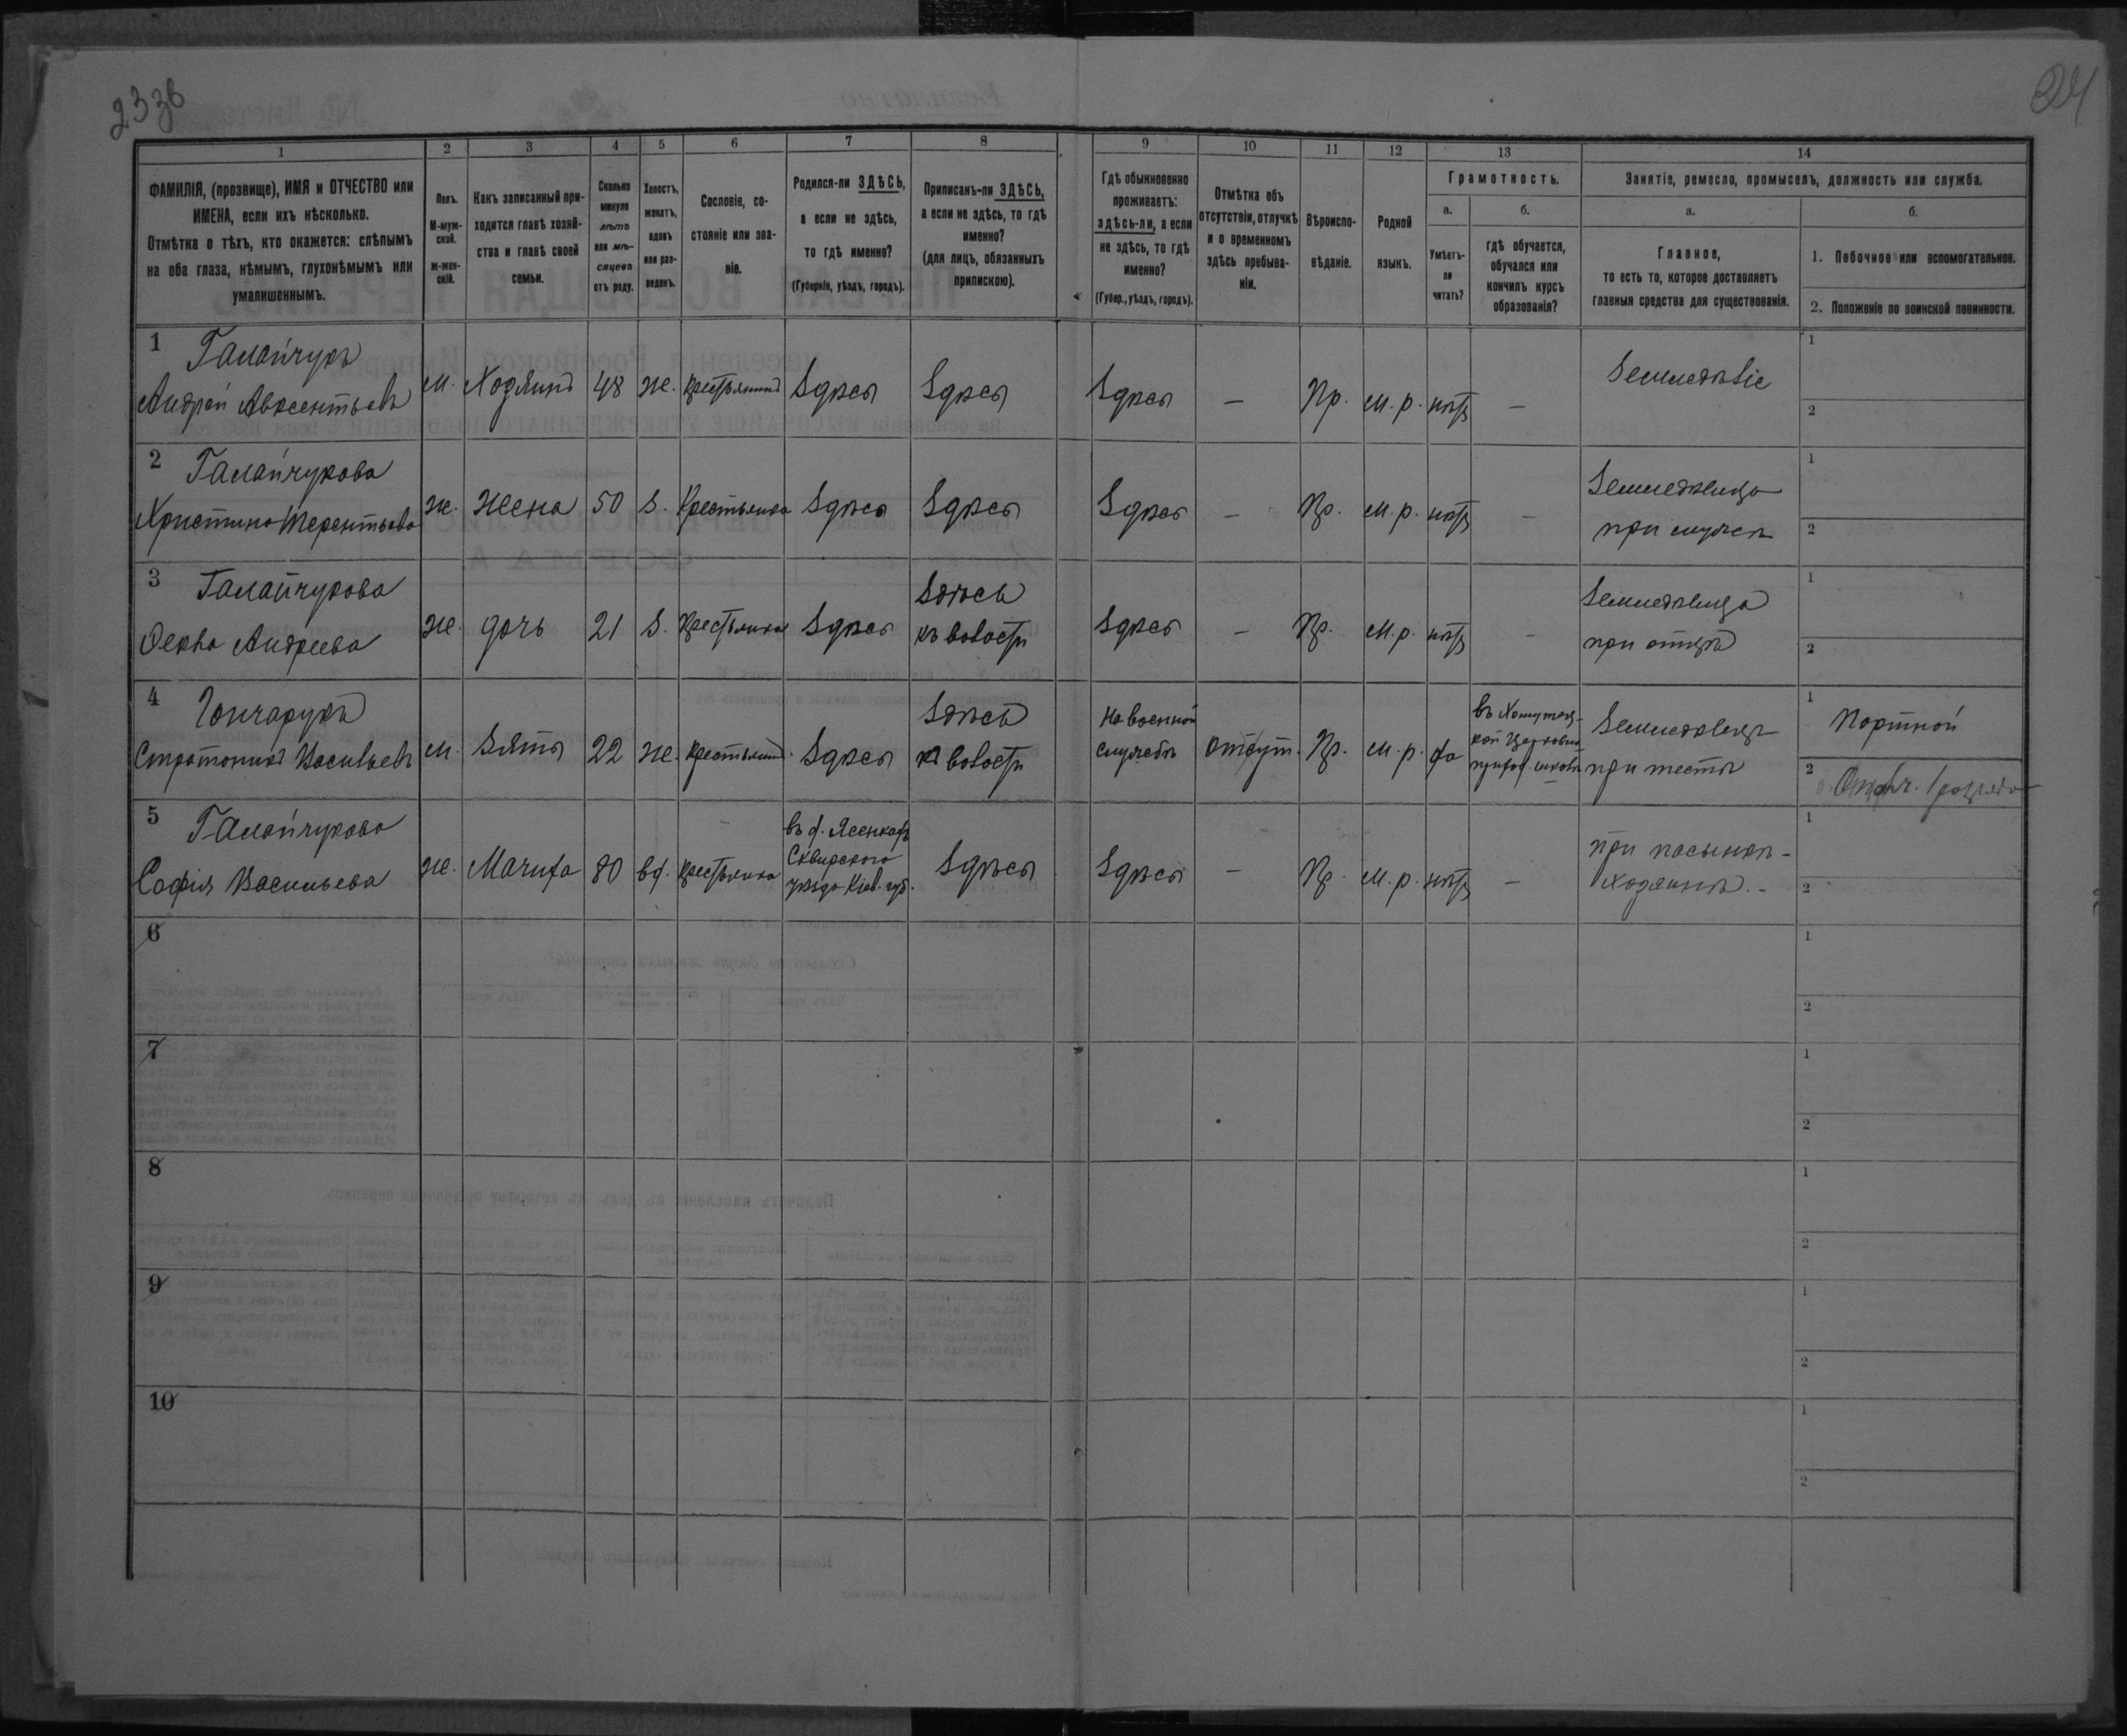 23зв
24
1
2
3
4
5
6
7
8
9
10
11
12
13
14
ФАМИЛІЯ, (прозвище), ИМЯ и ОТЧЕСТВО или
ИМЕНА, если ихъ нѣсколько.
Отмѣтка о тѣхъ, кто окажется: слѣпымъ
на оба глаза, нѣмымъ, глухонѣмымъ или
умалишеннымъ.
Полъ.
М-муж-
ской.
Ж-жен-
скій.
Какъ записанный при-
ходится главѣ хозяй-
ства и главѣ своей
семьи.
Сколько
минуло
лѣтъ
или мѣ-
сяцевъ
отъ роду.
Холостъ,
женатъ,
вдовъ
или раз-
веденъ.
Сословіе, со-
стояніе или зва-
ніе.
Родился-ли ЗДѢСЬ,
а если не здѣсь,
то гдѣ именно?
(Губернія, уѣздъ, городъ).
Приписанъ-ли ЗДѢСЬ,
а если не здѣсь, то гдѣ
именно?
(для лицъ, обязанныхъ
припискою).
Гдѣ обыкновенно
проживаетъ:
здѣсь-ли, а если
не здѣсь, то гдѣ
именно?
(Губер., уѣздъ, городъ).
Отмѣтка объ
отсутствіи, отлучкѣ
и о временномъ
здѣсь пребыва-
ніи.
Вѣроиспо-
вѣданіе.
Родной
языкъ.
Грамотность.
а.
Умѣетъ-
ли
читать?
б.
гдѣ обучается,
обучался или
кончилъ курсъ
образованія?
Занятіе, ремесло, промыселъ, должность или служба.
а.
Главное,
то есть то, которое доставляетъ
главныя средства для существованія.
б.
1. Побочное или вспомогательное.
2. Положеніе по воинской повинности.
1 Галайчукъ
Андрей Авксентьевъ
м. Хозяинъ 48 же. крестьянинъ Здѣсь Здѣсь Здѣсь — Пр. м.р. нѣтъ —
Земледѣліе
1
2
2 Галайчукова
Христина Терентьева
ж. жена 50 з. Крестьянка Здѣсь Здѣсь Здѣсь — Пр. м.р. нѣтъ —
Земледѣлица
при мужѣ
1
2
3 Галайчукова
Андреева
ж. дочь 21 з. крестьянка Здѣсь
Здѣсь
къ волости
Здѣсь — Пр. м.р. нѣтъ —
Земледѣлица
при отцѣ
1
2
4 Гончарукъ
Стратоникъ Васильевъ
м. Зять 22 же. крестьянин. Здѣсь
Здѣсь
къ волости
На военной
службѣ
отсут. Пр. м.р. да
Земледѣлецъ
при тестѣ
1 Портной
2
5 Галайчукова
Софія Васильева
ж. Мачиха 80 вд. крестьянка
въ д. Ясенкахъ
Сквирского
уѣзда Кіев. губ.
Здѣсь Здѣсь — Пр. м.р. нѣтъ —
при пасынкѣ-
хозяинѣ.-
1
2
6
1
2
7
1
2
8
1
2
9
1
2
10
1
2